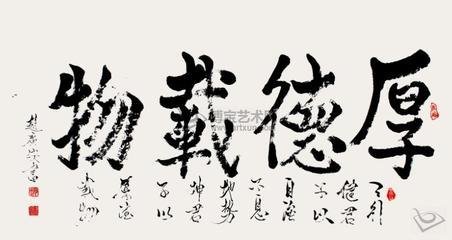 厚德載物
天行
健君
子以
自强
不息
地勢
坤君
子以
厚德
載物
博宝艺术网